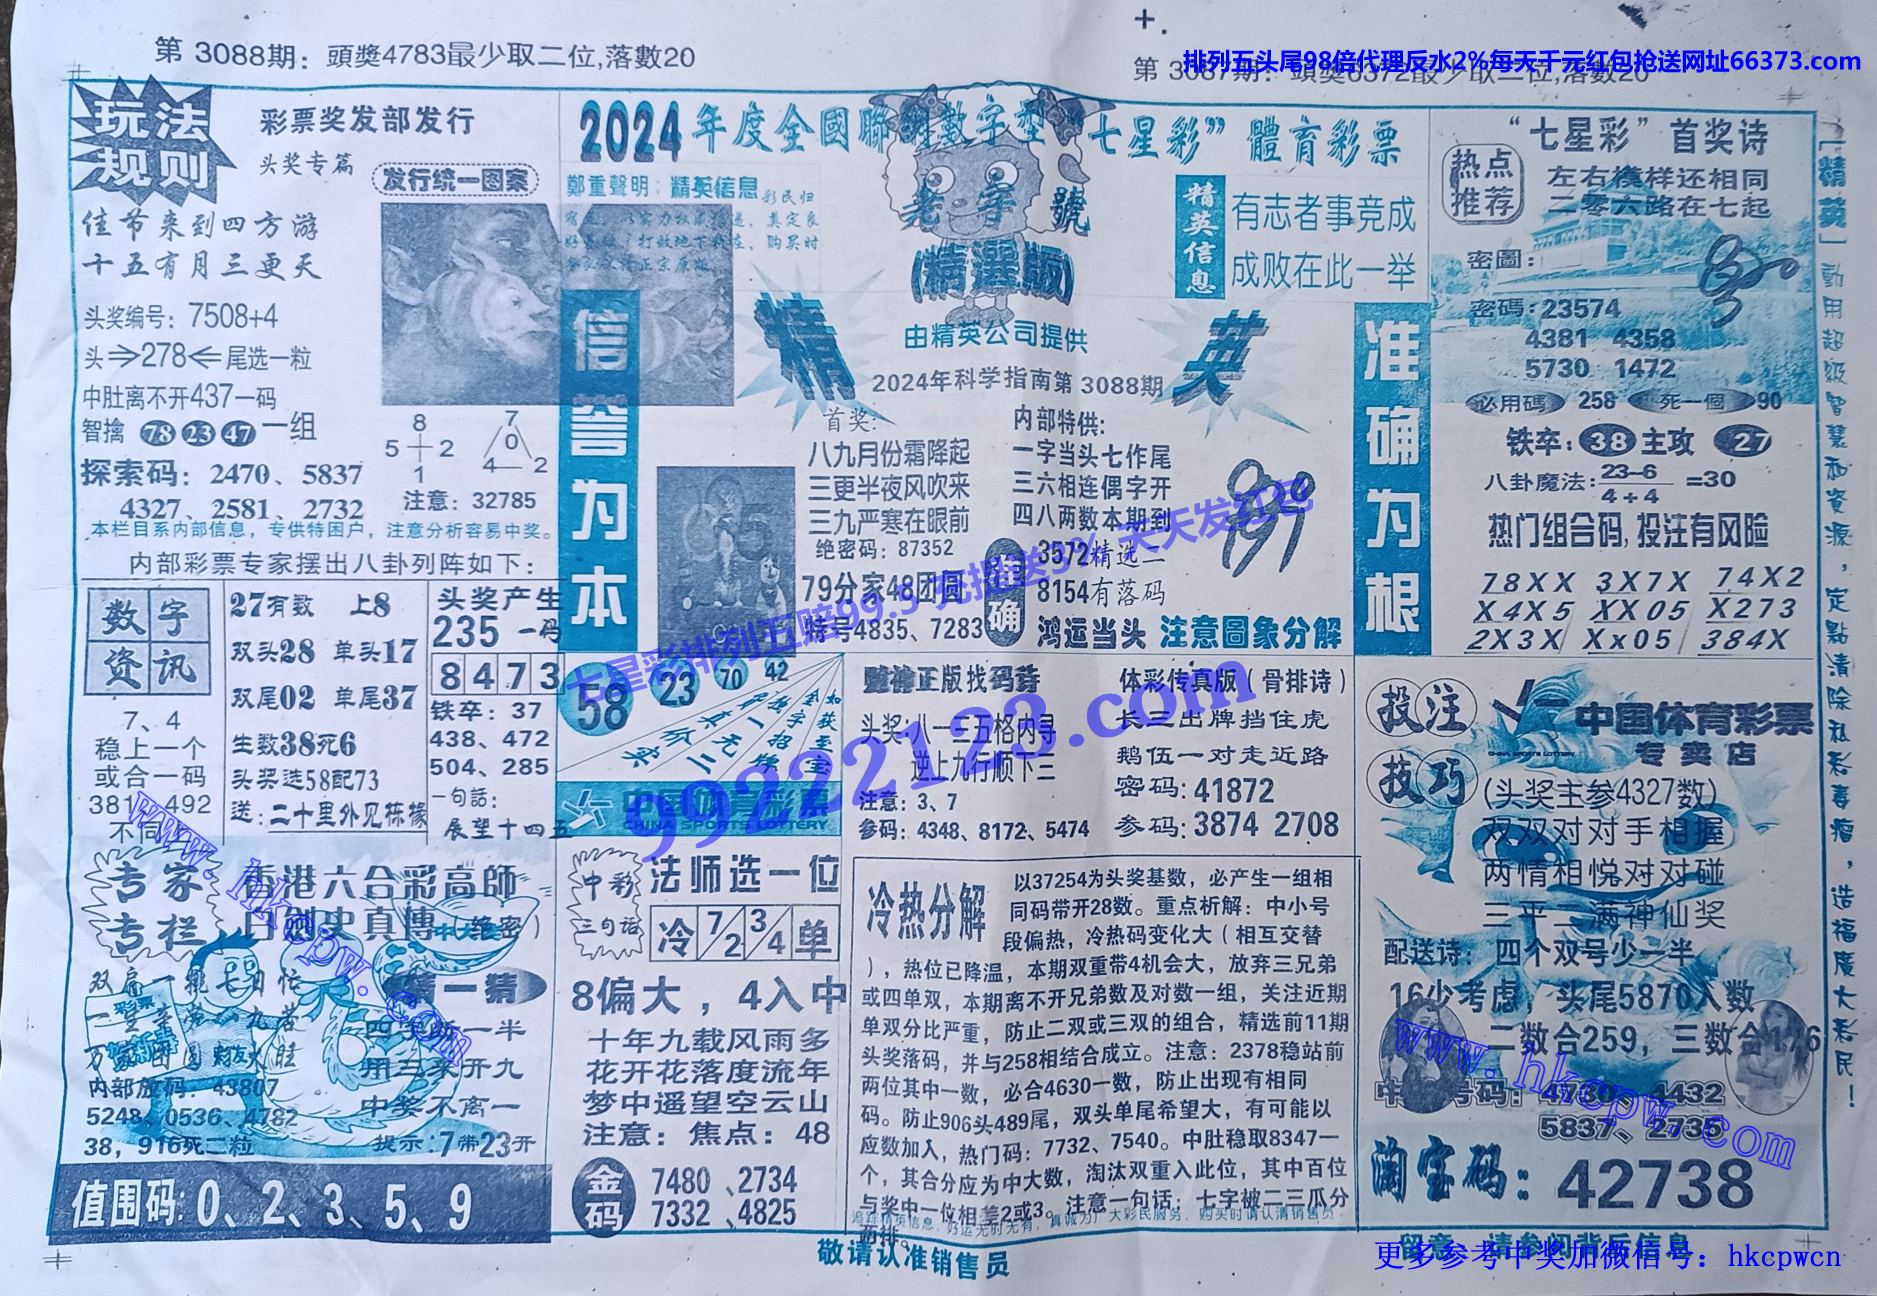 第 3088期：頭獎4783最少取二位,落數20
排列五头尾98倍代理反水2%每天千元红包抢送网址66373.com
玩法
规则
彩票奖发部发行
头奖专篇
发行统一图案
佳节来到四方游
十五有月三更天
头奖编号：7508+4
头⇒278⇐尾选一粒
中肚离不开437一码
智擒 78 23 47 一组
探索码：2470、5837
4327、2581、2732
8
5+2
1
7
0
4—2
注意：32785
本栏目系内部信息，专供特困户，注意分析容易中奖。
内部彩票专家摆出八卦列阵如下：
数字
资讯
7、4
稳上一个
或合一码
381、492
不同
27有数 上8
双头28 单头17
双尾02 单尾37
生数38死6
头奖选58配73
送：二十里外见栋椽
头奖产生
235 一码
8473
铁卒：37
438、472
504、285
一句話：
展望十四五
专家
专栏
香港六合彩高師
白创史真傳
绝密）
猜一猜
内部放码：43807
5248、0536、4782
38，916死二粒
四字頭一半
用三来开九
中奖不离一
提示：7带23开
值围码：0、2、3、5、9
2024年度全國聯網數字型“七星彩”體育彩票
鄭重聲明：精英信息
老字號
(精選版)
由精英公司提供
2024年科学指南第 3088期
精 英
精英信息
有志者事竞成
成败在此一举
信誉为本
准确为根
首奖：
八九月份霜降起
三更半夜风吹来
三九严寒在眼前
绝密码：87352
79分家48团圆
特号4835、7283
内部特供：
一字当头七作尾
三六相连偶字开
四八两数本期到
3572精选二
8154有落码
鸿运当头 注意圖象分解
58 23 70 42
中国体育彩票
CHINA SPORTS LOTTERY
财神正版找码诗
头奖：八一三五格内寻
逆上九行顺下三
注意：3、7
参码：4348、8172、5474
体彩传真版（骨排诗）
长三出牌挡住虎
鹅伍一对走近路
密码：41872
参码：3874 2708
中彩
三句话
法师选一位
冷 7/2 3/4 单
8偏大，4入中
十年九载风雨多
花开花落度流年
梦中遥望空云山
注意：焦点：48
金码
7480、2734
7332、4825
冷热分解
以37254为头奖基数，必产生一组相
同码带开28数。重点析解：中小号
段偏热，冷热码变化大（相互交替
），热位已降温，本期双重带4机会大，放弃三兄弟
或四单双，本期离不开兄弟数及对数一组，关注近期
单双分比严重，防止二双或三双的组合，精选前11期
头奖落码，并与258相结合成立。注意：2378稳站前
两位其中一数，必合4630一数，防止出现有相同
码。防止906头489尾，双头单尾希望大，有可能以
应数加入，热门码：7732、7540。中肚稳取8347一
个，其合分应为中大数，淘汰双重入此位，其中百位
与奖中一位相差2或3。注意一句话：七字被二三瓜分
而排。
敬请认准销售员
“七星彩”首奖诗
热点
推荐
左右模样还相同
二零六路在七起
密圖：
密碼：23574
4381 4358
5730 1472
必用碼 258 死一個 90
铁卒：38 主攻 27
八卦魔法：23-6/4+4=30
热门组合码,投注有风险
78XX 3X7X 74X2
X4X5 XX05 X273
2X3X Xx05 384X
投注
技巧
中国体育彩票
专卖店
(头奖主参4327数)
双双对对手相握
两情相悦对对碰
三平二满神仙奖
配送诗：四个双号少一半
16少考虑，头尾5870入数
二数合259，三数合146
4730、4432
5837、2735
淘宝码：42738
「精英」動用超級智慧和資源，定點清除私彩毒瘤，造福廣大彩民！
七星彩排列五赔99.5 充提送3% 天天发红包
99222123.com
www.hkcpw.com
www.hkcpw.com
更多参考中奖加微信号：hkcpwcn